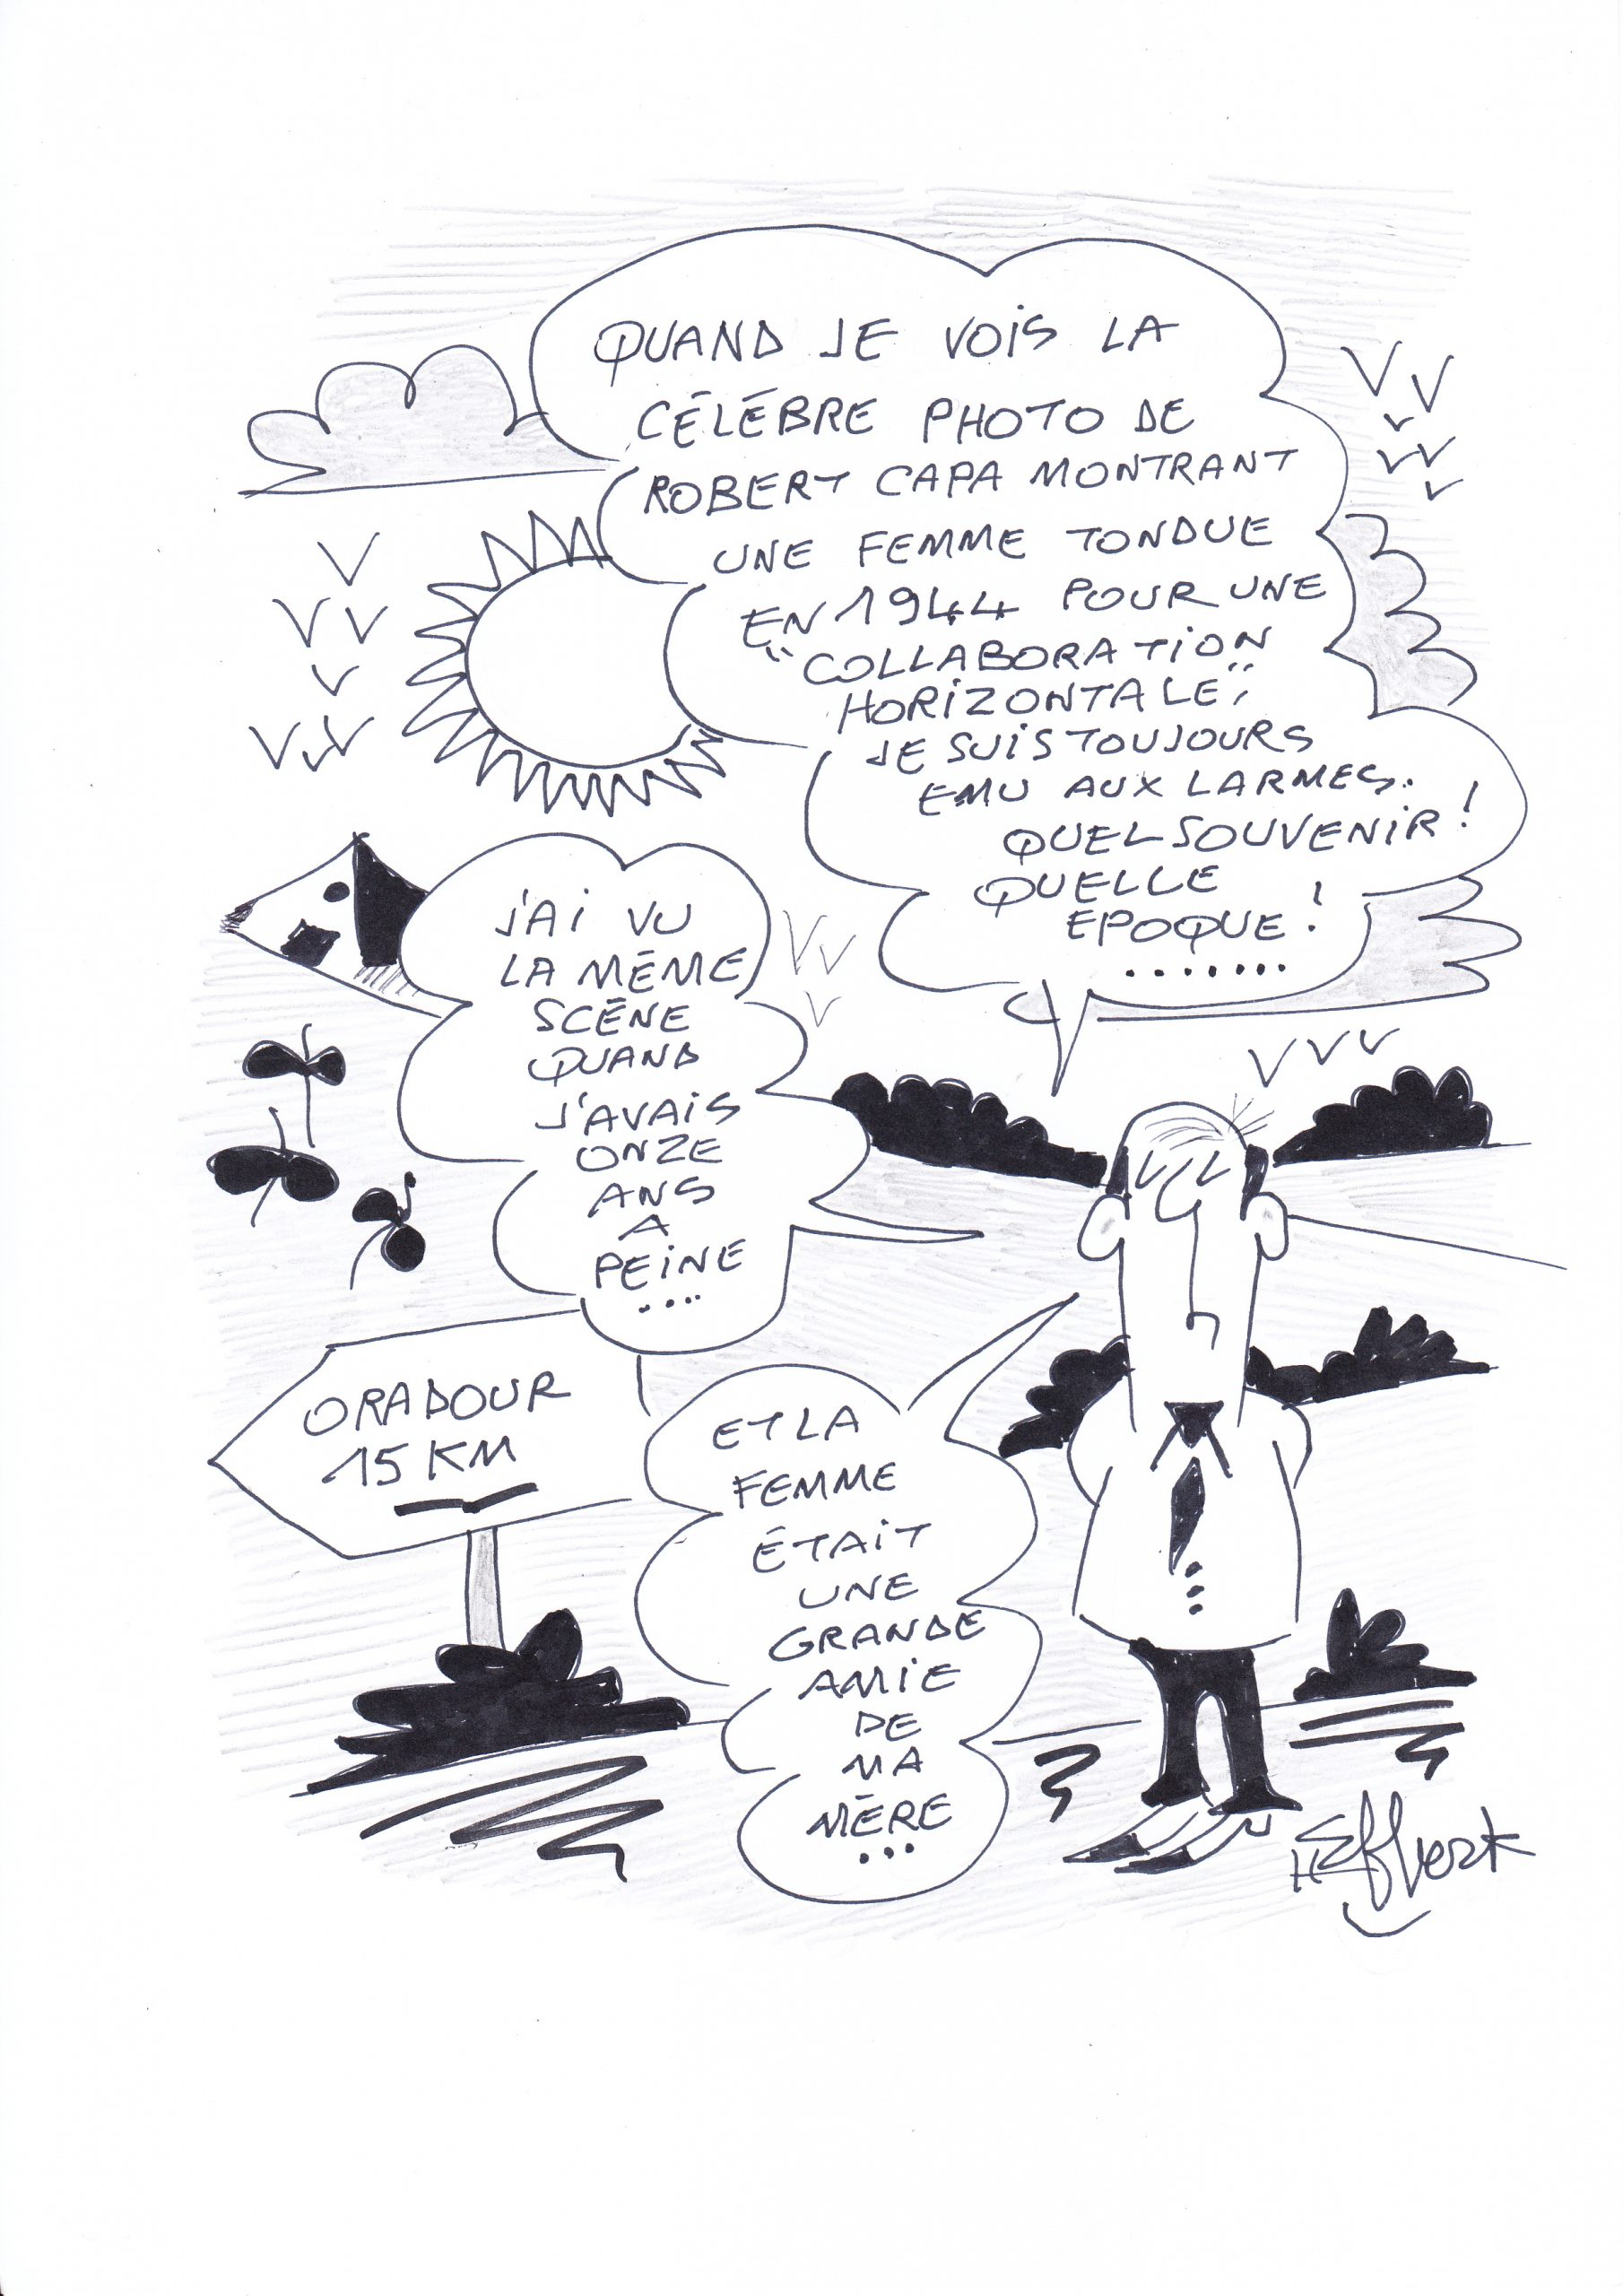 QUAND JE VOIS LA
CÉLÉBRE PHOTO DE
ROBERT CAPA MONTRANT
UNE FEMME TONDUE
EN 1944 POUR UNE
"COLLABORATION
HORIZONTALE",
JE SUIS TOUJOURS
EMU AUX LARMES..
QUEL SOUVENIR !
QUELLE
EPOQUE !
........
J'AI VU
LA MÊME
SCÉNE
QUAND
J'AVAIS
ONZE
ANS
A
PEINE
....
ORADOUR
15 KM
ET LA
FEMME
ÉTAIT
UNE
GRANDE
AMIE
DE
MA
MÉRE
...